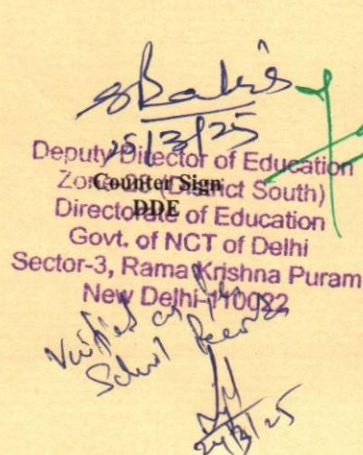 25/3/25
Deputy Director of Education
Counter Sign
(District South)
DDE
Directorate of Education
Govt. of NCT of Delhi
Sector-3, Rama Krishna Puram
New Delhi-110022
Verified as per
School Records
24/3/25